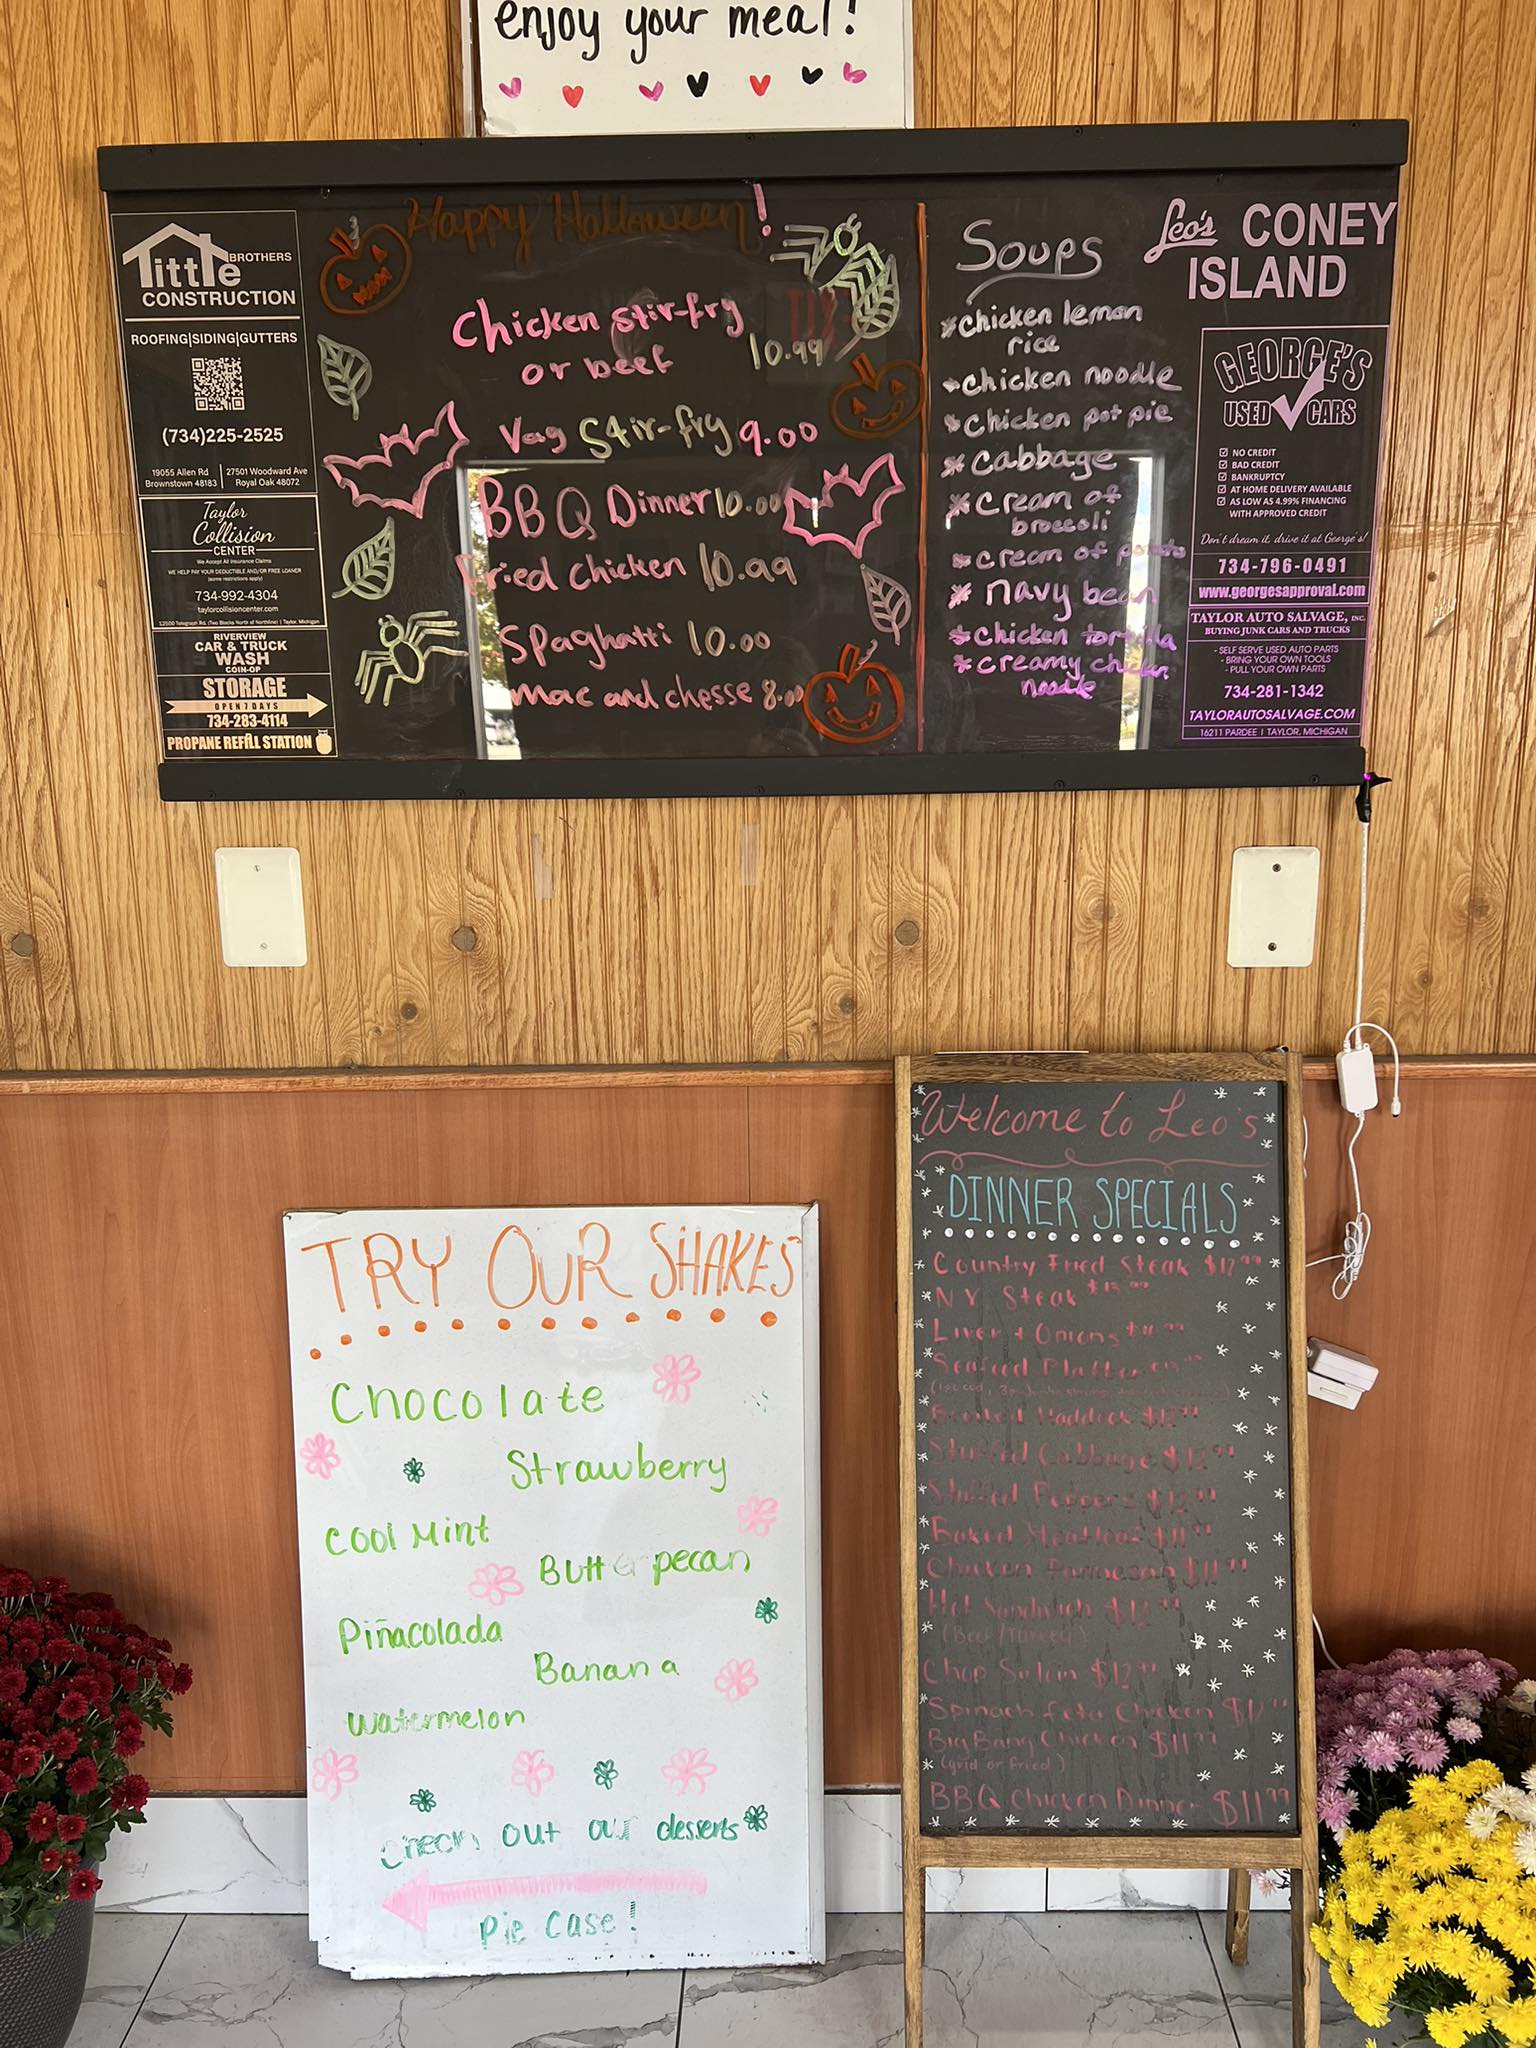 enjoy your meal!
Tittle BROTHERS
CONSTRUCTION
ROOFING|SIDING|GUTTERS
(734)225-2525
19055 Allen Rd
Brownstown 48183
27501 Woodward Ave
Royal Oak 48072
Taylor
Collision
CENTER
We Accept All Insurance Claims
WE HELP PAY YOUR DEDUCTIBLE AND/OR FREE LOANER
(some restrictions apply)
734-992-4304
taylorcollisioncenter.com
12500 Telegraph Rd. (Two Blocks North of Northline) | Taylor, Michigan
RIVERVIEW
CAR & TRUCK
WASH
COIN-OP
STORAGE
OPEN 7 DAYS
734-283-4114
PROPANE REFILL STATION
Happy Halloween!
Chicken stir-fry
or beef 10.99
Veg Stir-fry 9.00
BBQ Dinner 10.00
Fried chicken 10.99
Spaghatti 10.00
mac and chesse 8.00
Soups
*chicken lemon
rice
*chicken noodle
*chicken pot pie
*cabbage
*cream of
broccoli
*cream of potato
*navy bean
*chicken tortilla
*creamy chicken
noodle
Leo's CONEY
ISLAND
GEORGE'S
USED CARS
NO CREDIT
BAD CREDIT
BANKRUPTCY
AT HOME DELIVERY AVAILABLE
AS LOW AS 4.99% FINANCING
WITH APPROVED CREDIT
Don't dream it, drive it at George's!
734-796-0491
www.georgesapproval.com
TAYLOR AUTO SALVAGE, INC.
BUYING JUNK CARS AND TRUCKS
- SELF SERVE USED AUTO PARTS
- BRING YOUR OWN TOOLS
- PULL YOUR OWN PARTS
734-281-1342
TAYLORAUTOSALVAGE.COM
16211 PARDEE | TAYLOR, MICHIGAN
TRY OUR SHAKES
Chocolate
Strawberry
Cool Mint
Butter pecan
Piñacolada
Banana
Watermelon
Check out our desserts
Pie Case!
Welcome to Leo's
DINNER SPECIALS
Country Fried Steak $12.99
NY Steak $13.99
Liver + Onions $11.99
Seafood Platter
Haddock $12.99
Stuffed Cabbage $12.99
Stuffed Peppers $12.99
Baked Meatloaf $11.99
Chicken Parmesan $11.99
Hot Sandwich $12.99
(Beef/Turkey)
Chop Sirloin $12.99
Spinach feta Chicken
Big Bang Chicken $11.99
(grld or Fried)
BBQ Chicken Dinner $11.99